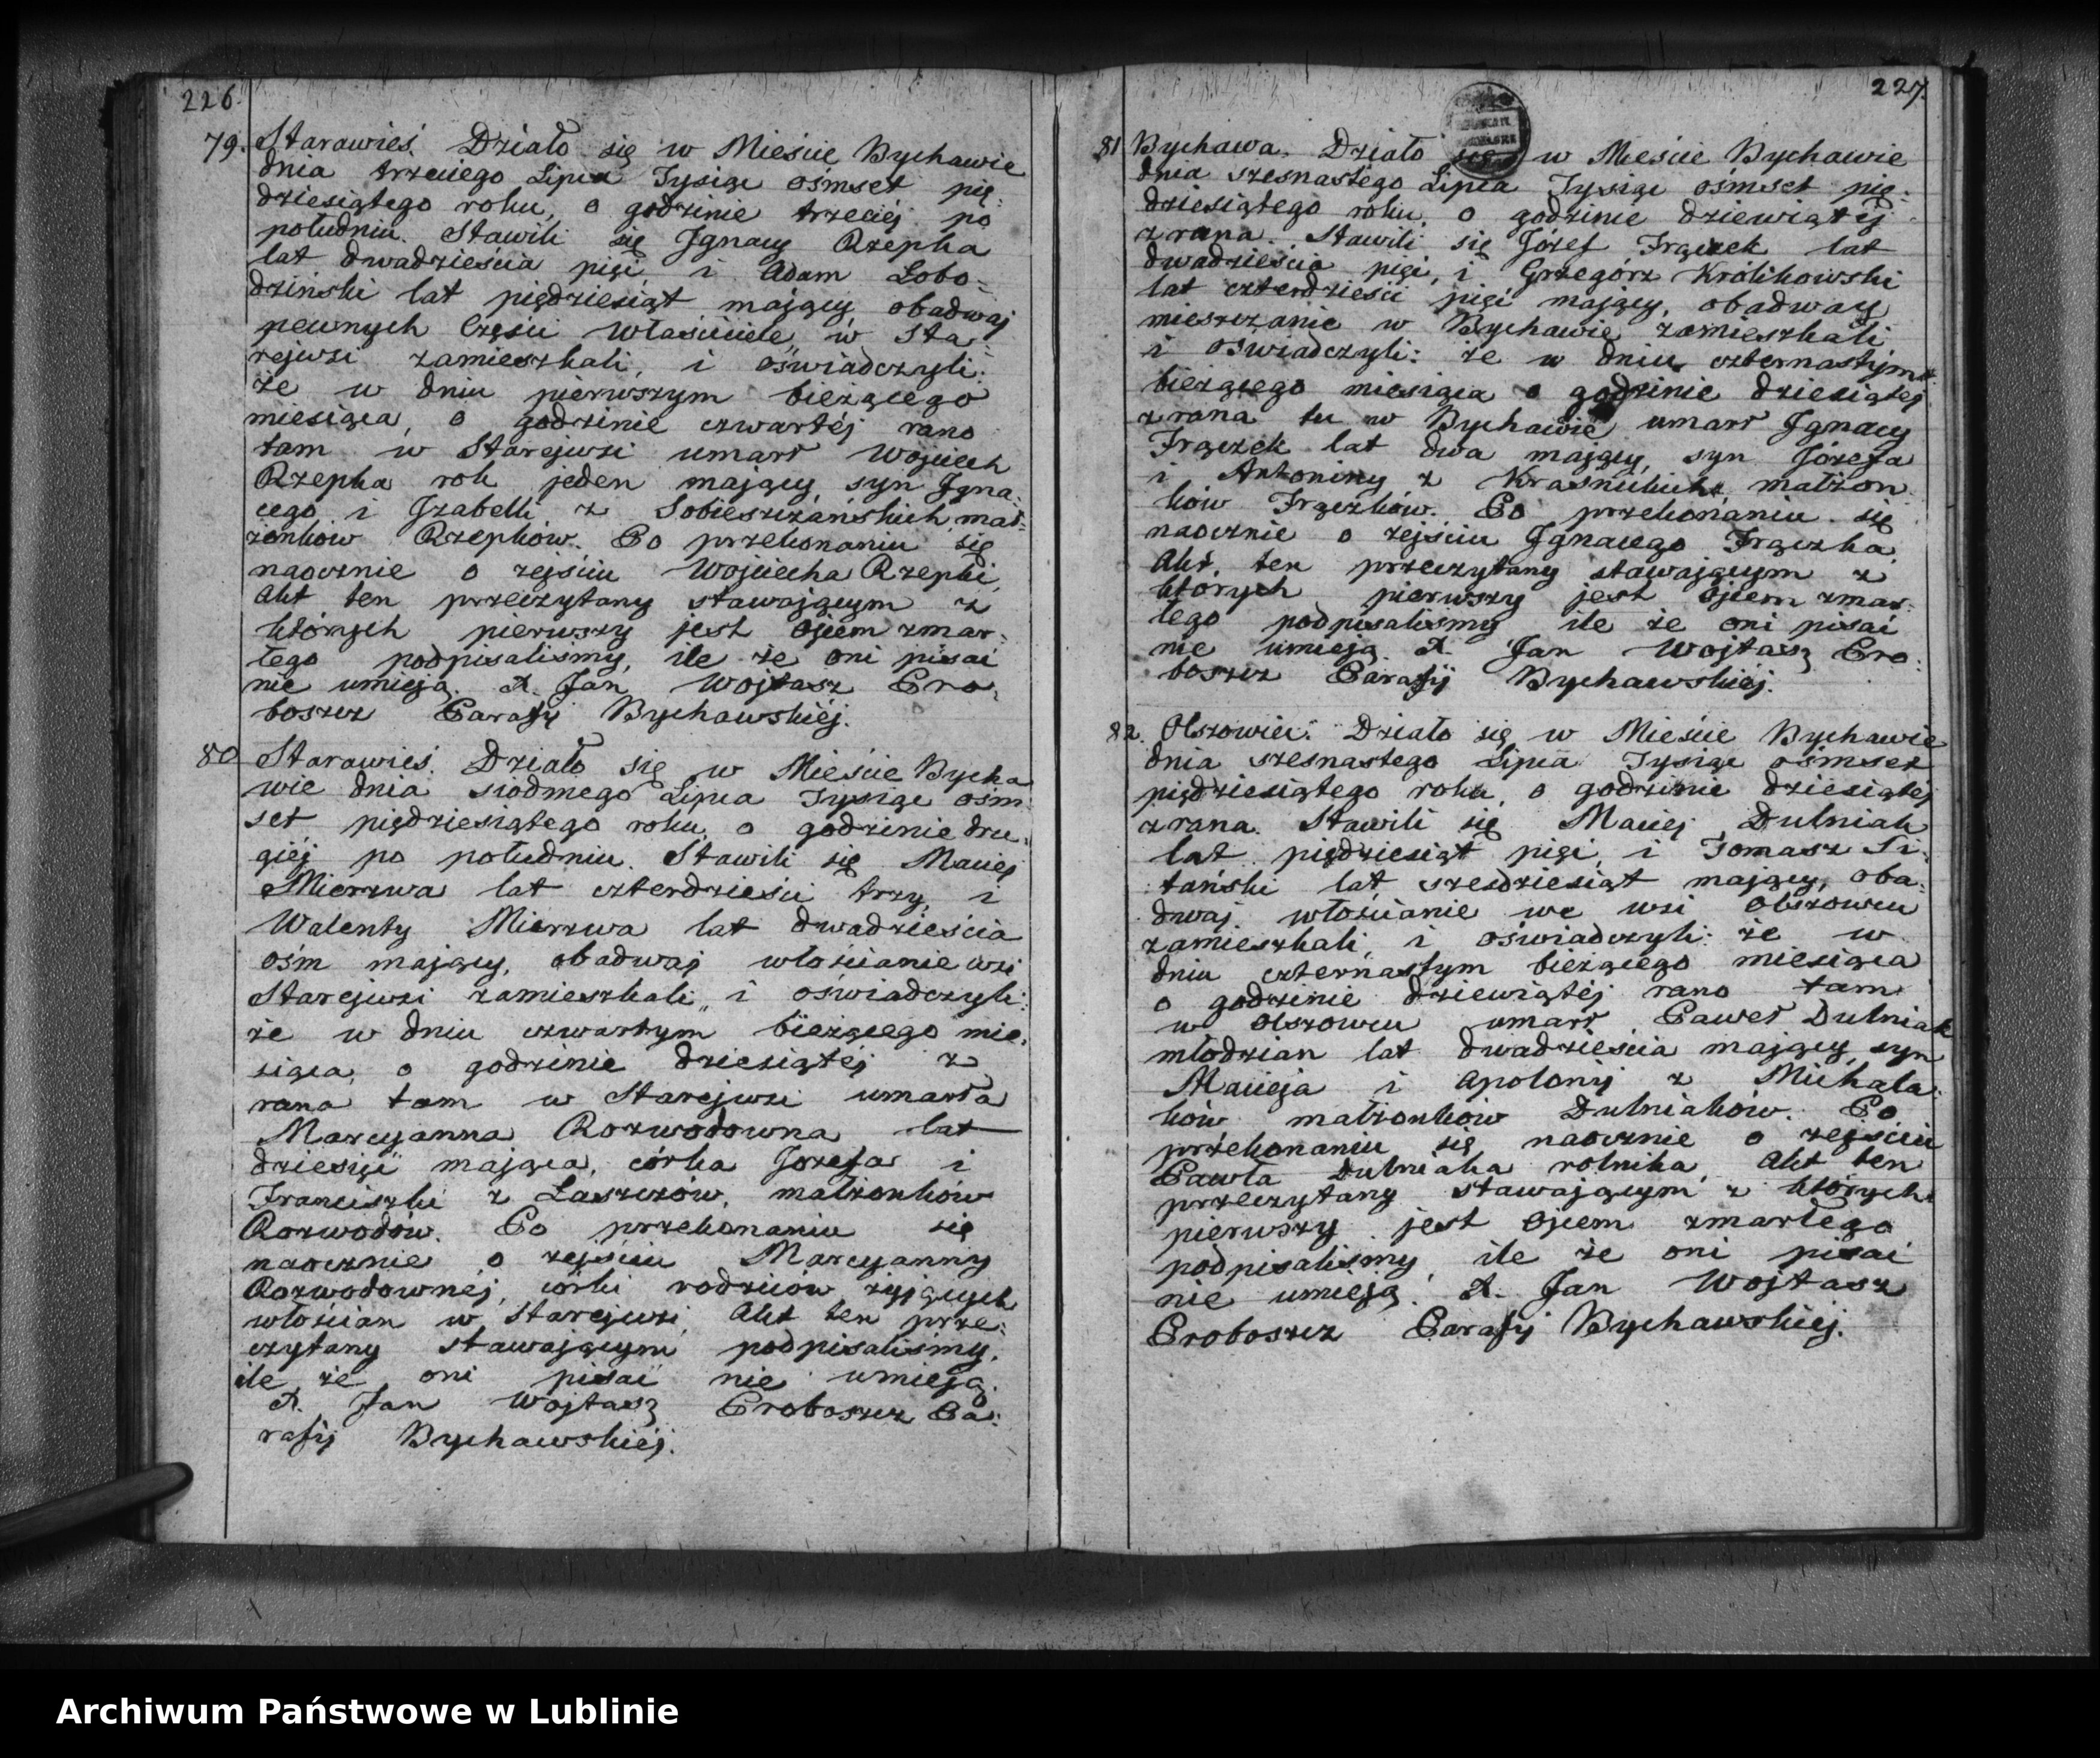 226.
79. Starawieś. Działo się w Mieście Bychawie
dnia trzeciego Lipca Tysiąc ośmset pię:
dziesiątego roku, o godzinie trzeciéj po
południu. Stawili się Jgnacy Rzepka
lat dwadzieścia pięć, i Adam Łobo=
dziński lat pięдziesiąt mający, obadwaj
pewnych Części Właściciele, w Sta:
rejwsi zamieszkali, i oświadczyli:
że w dniu pierwszym bieżącego
miesiąca, o godzinie czwartéj rano
tam w Starejwsi umarł Wojciech
Rzepka rok jeden mający, syn Jgna:
cego i Jzabelli z Sobieszczańskich, mał:
żonków Rzepków. Po przekonaniu się
naocznie o zejściu Wojciecha Rzepki,
Akt ten przeczytany stawającym z
których pierwszy jest Ojcem zmar:
łego podpisaliśmy, ile że oni pisać
nie umieją. X. Jan Wojtasz Pro:
boszcz Parafij Bychawskiéj.
80 Starawieś. Działo się w Mieście Bycha
wie dnia siodmego Lipca Tysiąc ośm
set pięдziesiątego roku, o godzinie dru:
giéj po południu. Stawili się Maciej
Mierzwa lat czterdzieści trzy, i
Walenty Mierzwa lat dwadzieścia
ośm mający, obadwaj włościanie wsi
Starejwsi zamieszkali, i oświadczyli:
że w dniu czwartym bieżącego mie:
siąca, o godzinie dziesiątéj z
rana tam w Starejwsi umarła
Marcyanna Rozwodowna lat
dziesięć mająca, córka Jozefa i
Franciszki z Łaszczów, małżonków
Rozwodów. Po przekonaniu się
naocznie o zejściu Marcyanny
Rozwodownéj, córki rodziców żyjących
włościan w Starejwsi, Akt ten prze:
czytany stawającym podpisaliśmy,
ile że oni pisać nie umieją.
X. Jan Wojtasz Proboszcz Pa:
rafij Bychawskiéj.
227.
81 Bychawa. Działo się w Mieście Bychawie
dnia szesnastego Lipca Tysiąc ośmset pię:
dziesiątego roku, o godzinie dziewiątéj
z rana. Stawili się Józef Frączek lat
dwadzieścia pięć, i Grzegórz Krolikowski
lat czterdzieści pięć mający, obadwaj
mieszczanie w Bychawie zamieszkali
i oświadczyli: że w dniu czternastym
bieżącego miesiąca o godzinie dziesiątéj
z rana tu w Bychawie umarł Jgnacy
Frączek lat dwa mający, syn Józefa
i Antoniny z Krasnickich, małżon
ków Frączków. Po przekonaniu się
naocznie o zejściu Jgnacego Frączka
Akt ten przeczytany stawającym z
których pierwszy jest Ojcem zmar:
łego podpisaliśmy ile że oni pisać
nie umieją. X. Jan Wojtasz Pro:
boszcz Parafij Bychawskiéj.
82. Olszowiec. Działo się w Mieście Bychawie
dnia szesnastego Lipca Tysiąc ośmset
pięдziesiątego roku, o godzinie dziesiątéj
z rana. Stawili się Maciej Dulniak
lat pięдziesiąt pięć, i Tomasz Si:
tański lat sześdziesiąt mający, oba:
dwaj włościanie we wsi Olszowcu
zamieszkali, i oświadczyli: że w
dniu czternastym bieżącego miesiąca
o godzinie dziewiątéj rano tam
w Olszowcu umarł Paweł Dulniak
młodzian lat dwadzieścia mający, syn
Macieja i Apolonij z Michala:
ków małżonków Dulniaków. Po
przekonaniu się naocznie o zejściu
Pawła Dulniaka rolnika, Akt ten
przeczytany stawającym z których
pierwszy jest Ojcem zmarłego
podpisaliśmy, ile że oni pisać
nie umieją. X. Jan Wojtasz
Proboszcz Parafij Bychawskiéj.
Archiwum Państwowe w Lublinie